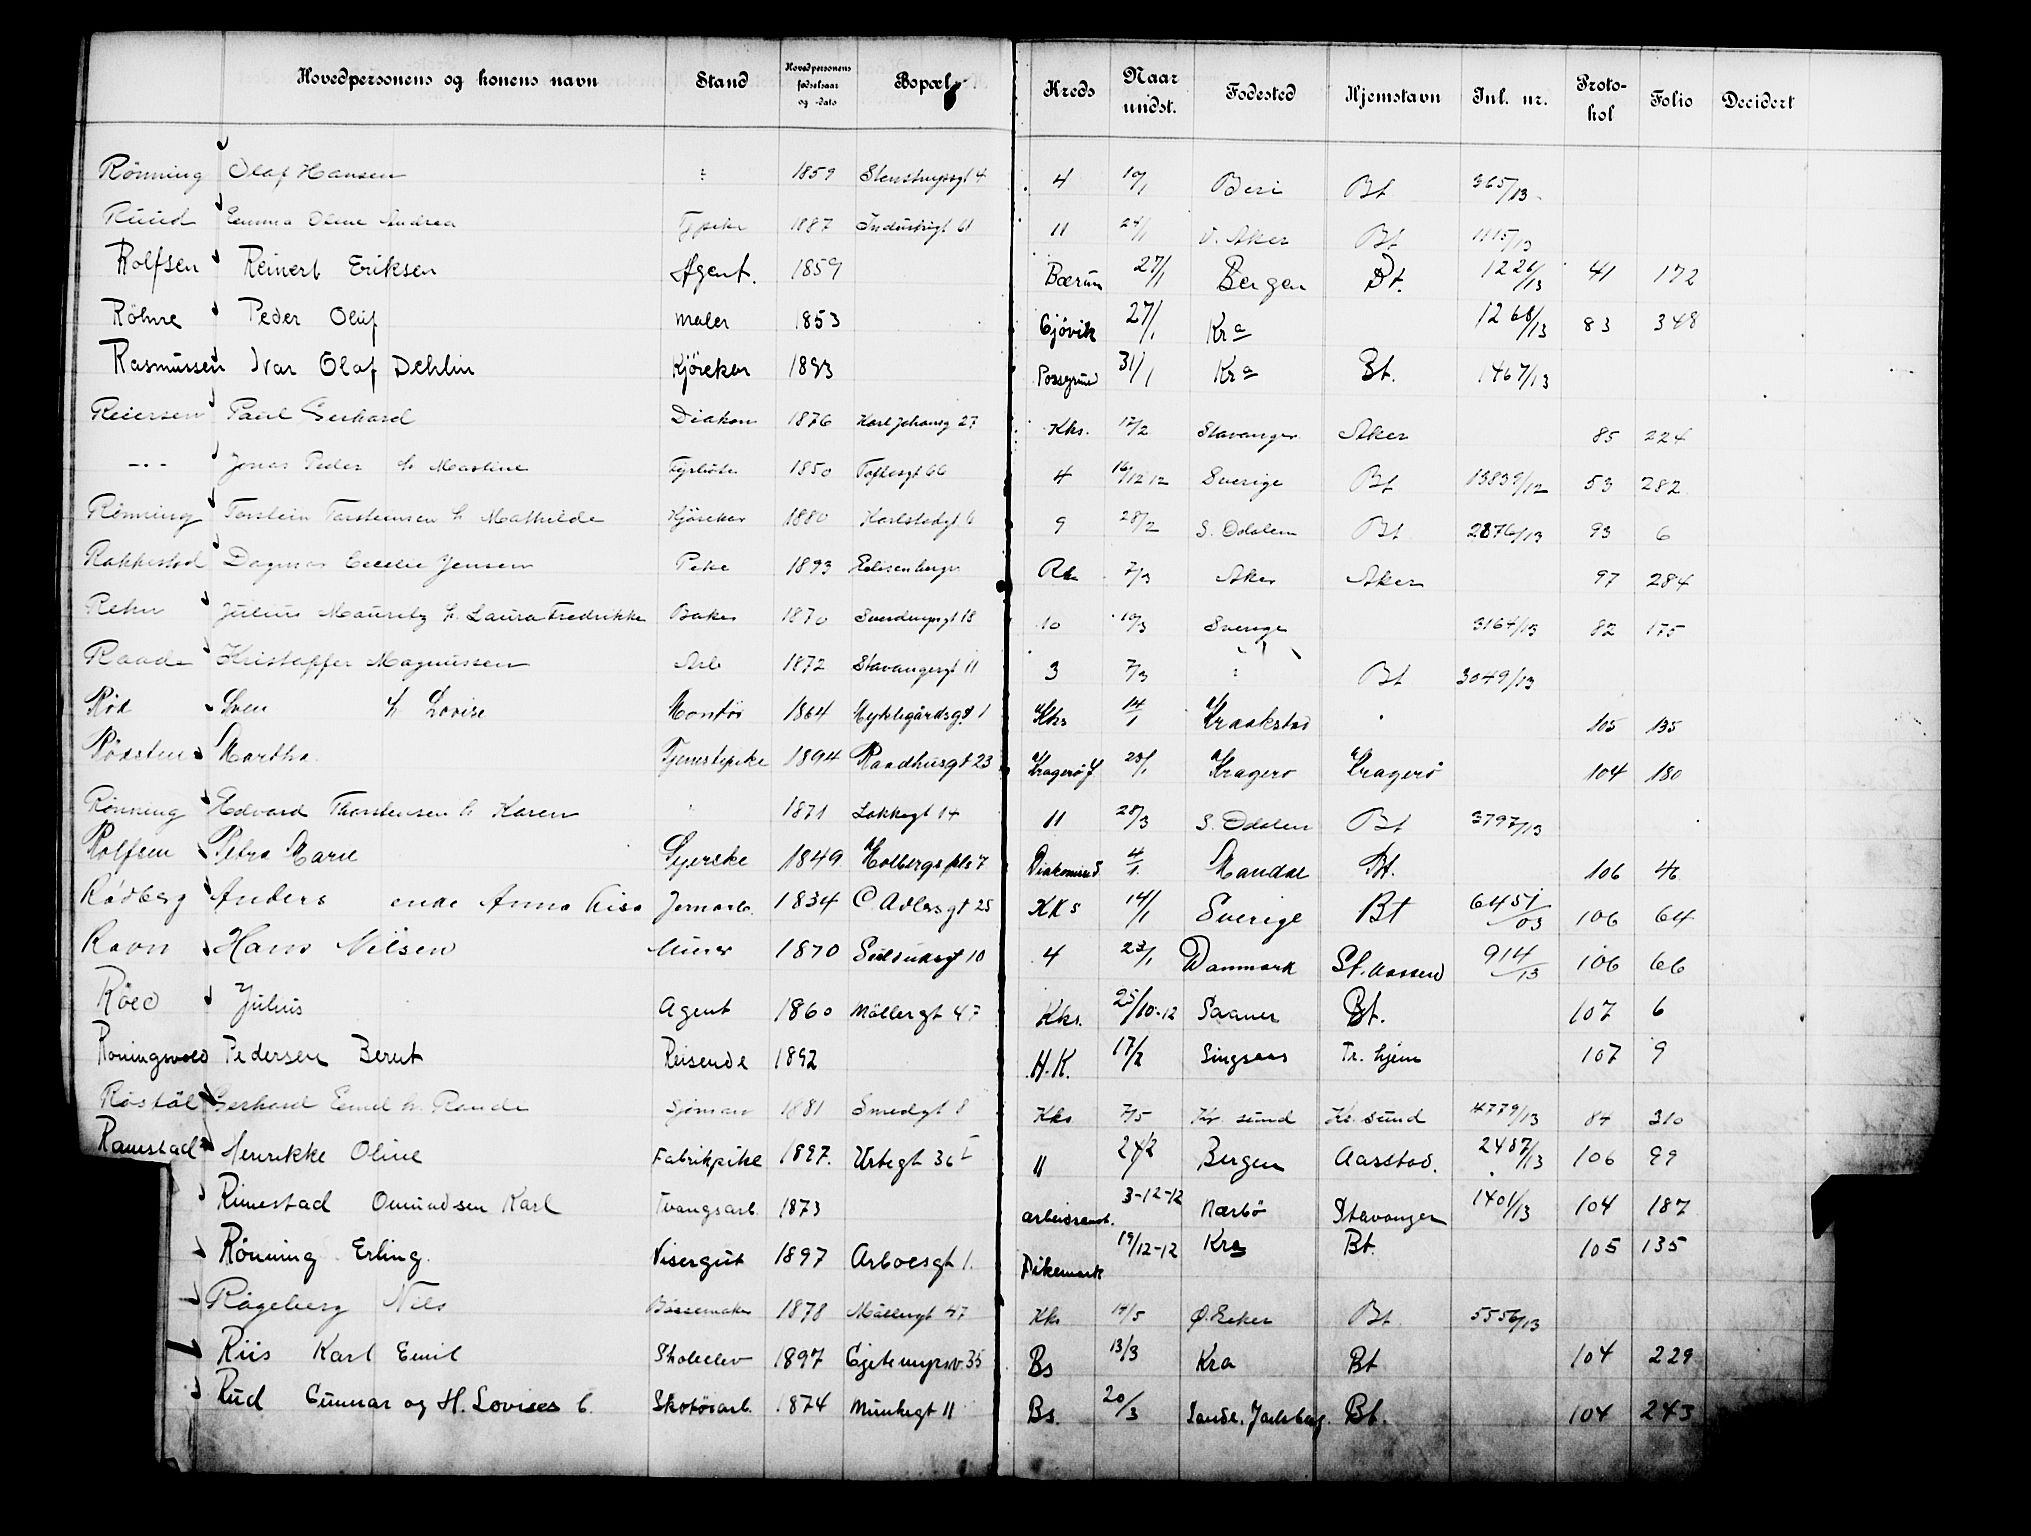 Hovedpersonens og konens navn Stand Hovedpersonens fødselsaar og -dato Bopæl Kreds Naar undst. Fødested Hjemstavn Jnl. nr. Proto-kol Folio Decidert
Rönning Olaf Hansen 1859 Stenstrupsgt 4 4 10/1 Beri Bt 365/13
Ruud Emma Oline Andrea Tj.pike 1887 Industrigt 61 11 24/1 V. Aker Bt 1115/13
Rolfsen Reinert Eriksen Agent. 1859 Bærum 27/1 Bergen Bt. 1226/13 41 172
Röhne Peder Oluf Maler 1853 Gjövik 27/1 Kra 1268/13 83 348
Rasmussen Ivar Olaf Dehlin Kjörekar 1893 Porsgrund 31/1 Kra Bt. 1467/13
Reiersen Paul Gerhard Diakon 1876 Karl Johansg 27 Kks. 17/2 Stavanger Aker 85 224
-"- Jonas Peder h. Martine Fyrböter 1850 Toftesgt 66 4 16/12 12 Sverige Bt 13839/12 53 282
Rönning Torstein Torsteinsen h. Mathilde Kjörekar 1880 Karlstadgt 6 9 28/2 S. Odalen Bt 2876/13 93 6
Rakkestad Dagmar Cecelie Jensen Pike 1893 Helisenbergv 7/3 Aker Aker 97 284
Rehn Julius Mauritz h. Laura Fredrikke Baker 1870 Sverdrupsgt 18 10 10/3 Sverige 3164/13 82 175
Raade Kristoffer Magnussen Arb 1872 Stavangergt 11 3 7/3 Bt 3049/13
Röd Sven h. Lovise Montör 1864 Nyblegårdsgt 1 Kks 14/1 Kraakstad 105 135
Martha Tjenestepike 1894 Raadhusgt 23 Kragerö 28/1 Kragerö Kragerö 104 180
Rönning Edvard Thorstensen h. Karen 1871 Lakkegt 14 11 28/3 S. Odalen Bt 3797/13
Rolfsen Petra Marie Syerske 1849 Holbergs pls 7 4/1. Mandal Bt. 106 46
Rödberg Anders enke Anna Lisa Jernarb. 1834 C. Adlersgt 25 KKs 14/1 Sverige Bt 6451/03 106 64
Ravn Hans Nilsen Murer 1870 Seilduksgt 10 4 23/1 Danmark 914/13 106 66
Röed Julius Agent 1860 Möllergt 47 Kks. 25/10-12 Saaner Bt. 107 6
Roningsvold Pedersen Bernt Reisende 1892 H.K. 17/2 Singsaas Tr. hjem 107 9
Röstöl Gerhard Emil h. Rande Sjömann 1881 Smedgt 8 Kks 7/5 Kr. sund Kr. sund 4779/13 84 310
Ramestad Henrikke Oline Fabrikpike 1897. Urtegt 36 I 11 24/2 Bergen Aarstad. 2487/13 106 99
Rimestad Omundsen Karl Tvangsarb. 1873 arbeidsanst. 3-12-12 Nærbö Stavanger 1401/13 104 187
Rönning Erling. Visergut 1897 Arboesgt 1. Dikemark 19/12-12 Kra Bt. 105 135
Rågeberg Nils Börsemaker 1878 Möllergt 47 Kks 14/5 Ø. Eker Bt 5556/13
Riis Karl Emil Skoleelev 1897 Gjetemyrsv. 35 Bs 13/3 Kra Bt 104 229
Rud Gunnar og H. Lovises b. Skotöiarb. 1874 Munkegt 11 Bs. 20/3 Sande, Jarlsberg. Bt. 104 243